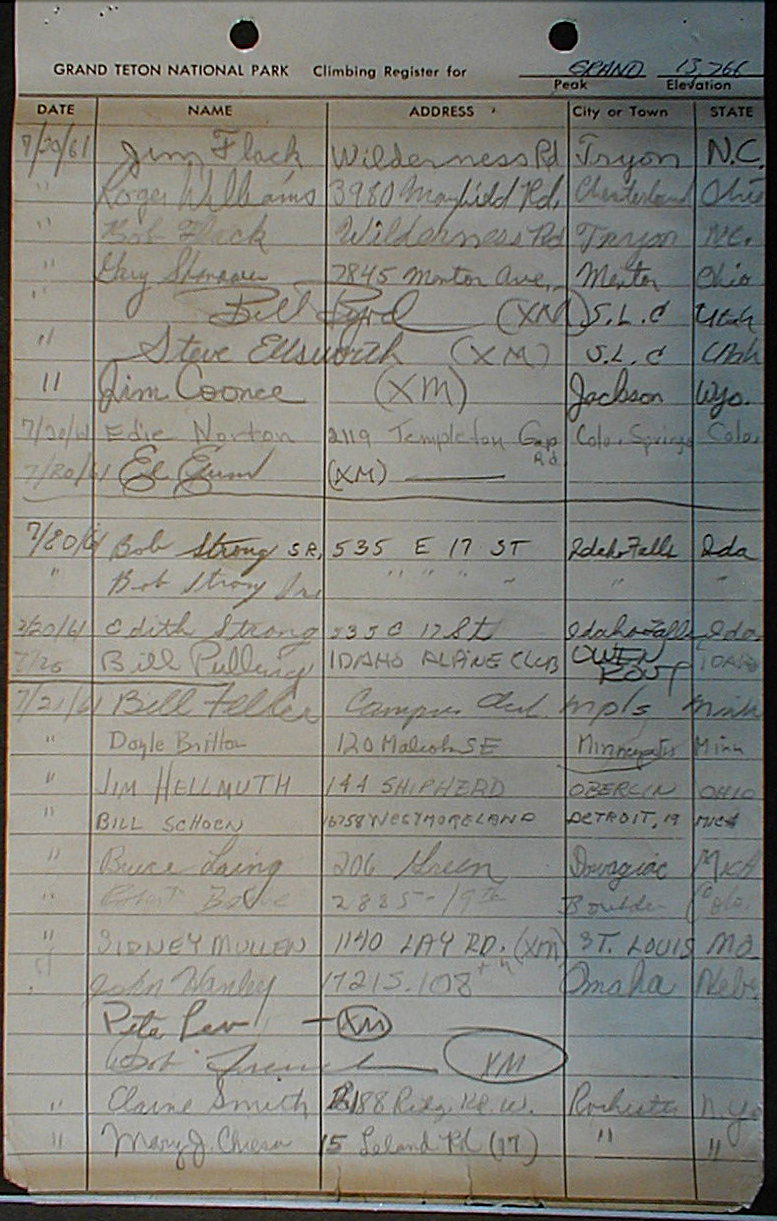 GRAND TETON NATIONAL PARK Climbing Register for GRAND 13,766
Peak Elevation
DATE NAME ADDRESS City or Town STATE
7/20/61 Jim Flack Wilderness Rd Tryon N.C.
" Roger Williams 3980 Mayfield Rd, Chesterland Ohio
" Bob Flack Wilderness Rd Tryon N.C.
" Gary 7845 Mentor Ave., Mentor Ohio
" Bill Byrd (XM) S.L.C Utah
" Steve Ellsworth (XM) S.L.C Utah
" Jim Coonce (XM) Jackson Wyo.
7/20/61 Edie Norton 2119 Templeton Gap Rd Colo. Springs Colo.
7/20/61 (XM)
7/20/61 Bob Strong SR, 535 E 17 ST Idaho Falls Ida
" Bob Strong Jr. " " " " " "
7/20/61 Edith Strong 535 E 17 St Idaho Falls Ida.
7/20 Bill Pulling IDAHO ALPINE CLUB OWEN ROUT IDAHO
7/21/61 Bill Campus Mpls Minn
" Doyle Britton 120 Malcolm SE Minneapolis Minn
" JIM HELLMUTH 144 SHIPHERD OBERLIN OHIO
" BILL SCHOEN 16758 WESTMORELAND DETROIT, 19 MICH
" Bruce Laing 206 Green Dowagiac Mich
" 2885-19th Boulder Colo.
" SIDNEY MULLEN 1140 LAY RD. (XM) ST. LOUIS MO
" John Hanley 1721 S. 108th Omaha Nebr
Pete Lev - XM
Bob French XM
" Elaine Smith 2188 Ridge Rd. W. Rochester N.Y.
" Mary J. Chiesa 15 Leland Rd (17) " "